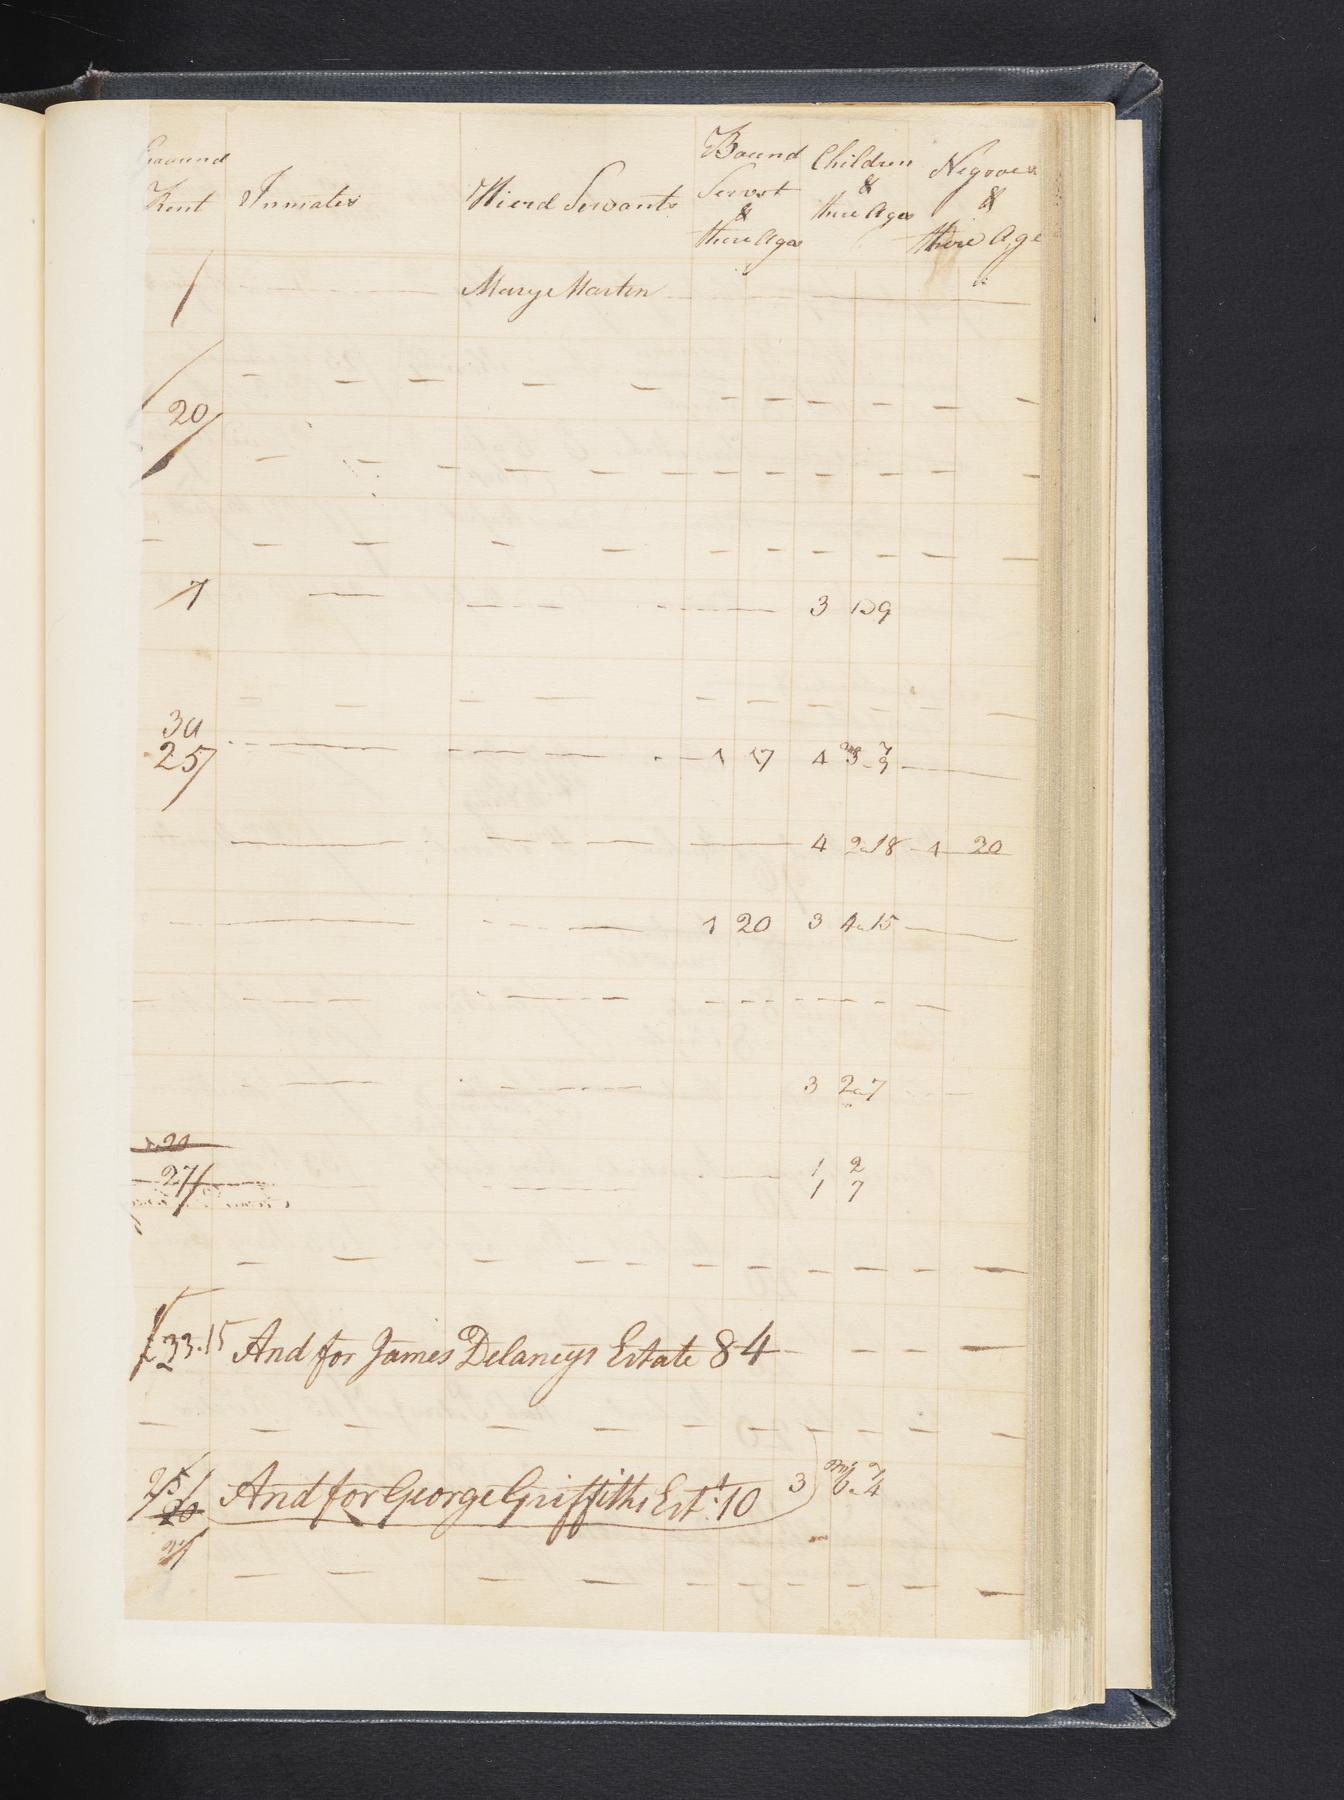 Ground Rent
Inmates
Hierd Servants
Bound Servt & there Ages
Children & there Ages
Negroes & there Age
Mary Martin
20/
7
3
30
25/
1 17 4 3 7
4 2 a 18 1 20
1 20 3 4 a 15
3 2 a 7
20
27/
1 2
1 7
£33.15 And for James Delaneys Estate 84
25/ And for George Griffiths Est.t 10 3 6. 4
20